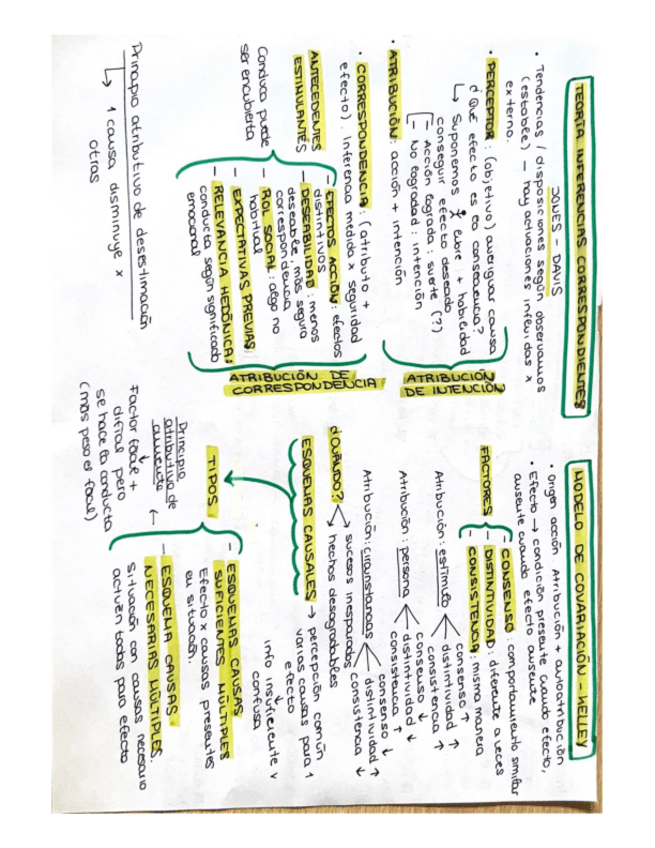 TEORÍA INFERENCIAS CORRESPONDIENTES
JONES - DAVIS
· Tendencias / disposiciones según observamos
(estable) — hay actuaciones infeuidas x
externo.
· PERCEPTOR: (objetivo) averiguar causa
¿Qué efecto es ea consecuencia?
↳ Suponemos x eubre + habilidad
conseguir efecto deseado
- Acción eograda: suerte (??)
- No eograda: intención
· ATRIBUCIÓN: acción + intención
ATRIBUCIÓN
DE INTENCIÓN
· CORRESPONDENCIA: (atributo +
efecto). Inferencia medida x seguridad
ANTECEDENTES
ESTIMULANTES
Conduca puede
ser encubierta
- EFECTOS ACCIÓN: efectos
distintivos
- DESEABILIDAD: menos
deseable, más segura
correspondencia
- ROL SOCIAL: aego no
habitual
- EXPECTATIVAS PREVIAS
- RELEVANCIA HEDÓNICA:
conducta según significado
emocional
ATRIBUCIÓN DE
CORRESPONDENCIA
Principio atributivo de desestimación
↳ 1 causa disminuye x
otras
MODELO DE COVARIACIÓN - KELLEY
· Origen acción Atribución + autoatribución
· Efecto → condición presente cuando efecto,
ausente cuando efecto ausente
FACTORES
- CONSENSO: comportamiento similar
- DISTINTIVIDAD: diferente a veces
- CONSISTENCIA: misma manera
Atribución: estímulo
consenso ↑
distintividad ↑
consistencia ↑
Atribución: persona
consenso ↓
distintividad ↓
consistencia ↑
Atribución: circunstancias
consenso ↓
distintividad ↑
consistencia ↓
¿CUÁNDO?
sucesos inesperados
hechos desagradables
ESQUEMAS CAUSALES → percepción común
varias causas para 1
efecto
↓
info insuficiente v
confusa
TIPOS
- ESQUEMAS CAUSAS
SUFICIENTES MÚLTIPLES
Efecto x causas presentes
eu situación.
- ESQUEMA CAUSAS
NECESARIAS MÚLTIPLES.
Situación con causas necesario
actúen todas para efecto
Principio
atributivo de
aumento
↓
Factor focae +
difícil pero
se hace ea conducta
(más peso ei focal)